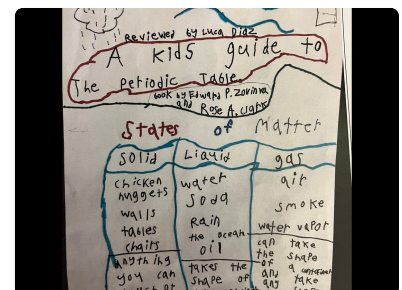 Reviewed by Luca Diaz
A kids guide to
The Periodic Table
book by Edward P. Zovinka
and Rose A. Clark
States of Matter
solid Liquid gas
chicken nuggets water air
walls Soda smoke
tables Rain water vapor
chairs the ocean
oil
anything you can
takes the shape of
can take the shape of a container and any take